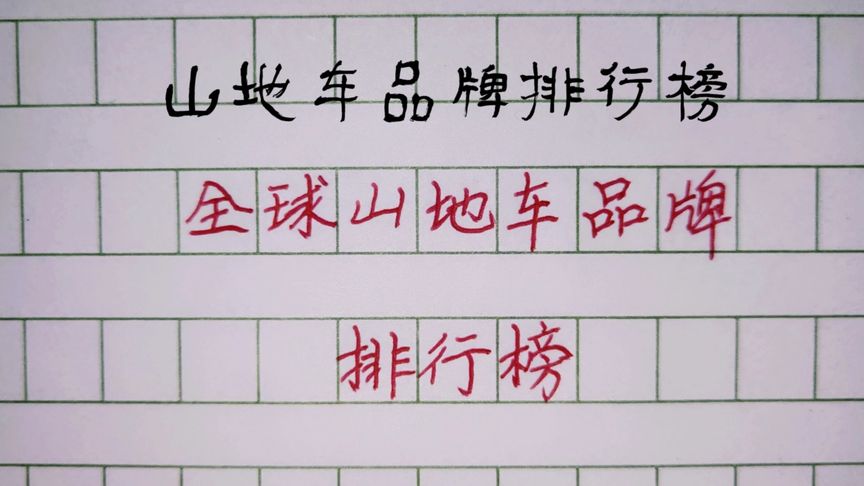 山地车品牌排行榜
全球山地车品牌
排行榜